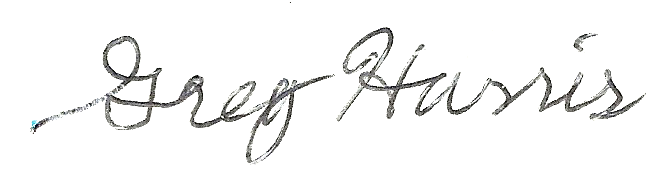 Greg Harris